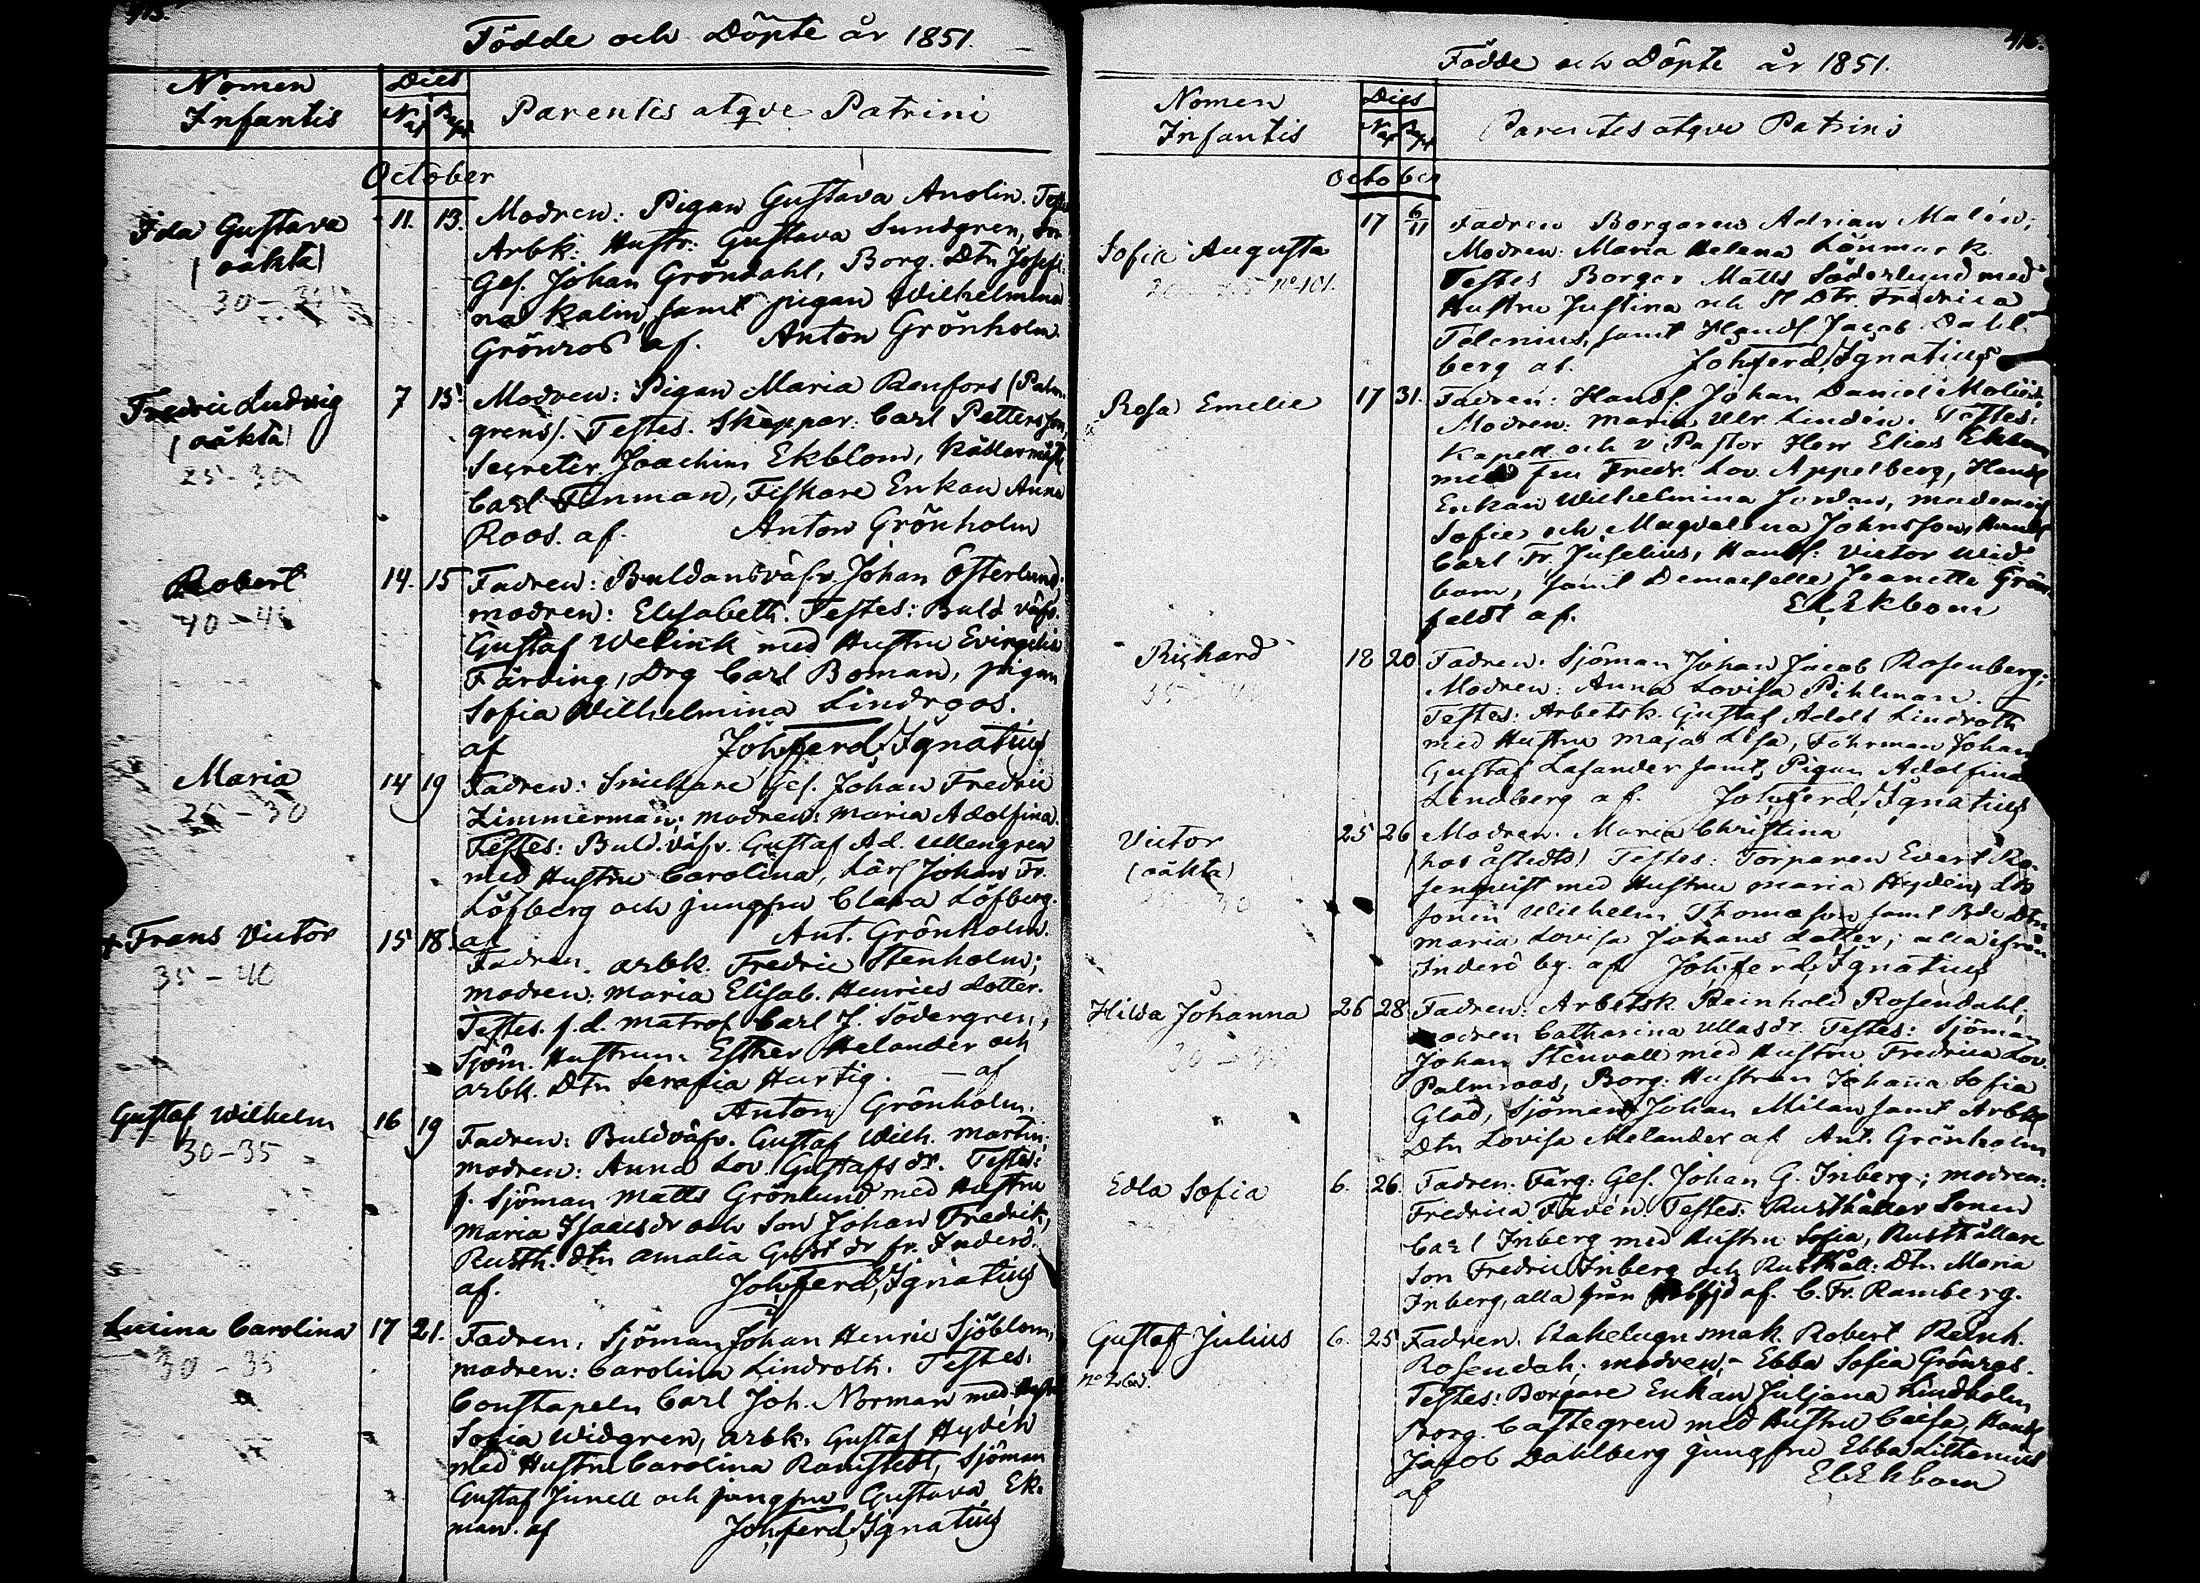 415.
Födde och Döpte år 1851.
Nomen Infantis
Dies
Nat Bapt
Parentes atqve Patrini
October
Ida Gustava 11. 13. Modren: Pigan Gustava Anolin. Testes
(oäkta) Arbk. Hustr: Gustava Sundgren,
30 – Ges. Johan Gröndahl, Borg. Dtn Josefi
na Kalin, samt pigan Wilhelmina
Grönros af. Anton Grönholm.
Fredric Ludvig 7 13 Modren: Pigan Maria Renfors (Palm
(oäkta) grens). Testes. Skeppar. Carl Pettersson,
25 – 30 Secreter. Joachim Ekblom, Källarmäst
Carl Finman, Fiskare Enkan Anna
Roos. af. Anton Grönholm
Robert 14. 15 Fadren: Buldansväfv. Johan Österlund;
40 – 45 modren: Elisabeth. Testes: Buld väfv.
Gustaf Welink med Hustru Evingelia
Färding, Drg Carl Boman, pigan
Sofia Wilhelmina Lindroos.
af Joh. Ferd. Ignatius
Maria 14 19 Fadren: Snickare Ges. Johan Fredric
25 – 30 Zimmerman; modren: Maria Adolfina.
Testes: Buld. väfv. Gustaf Ad. Ullengren
med Hustru Carolina, Lärl Johan Fr.
Löfberg och jungfru Clara Löfberg.
af Ant. Grönholm.
+ Frans Victor 15 18. Fadren. arbk. Fredric Stenholm;
35 – 40 modren: Maria Elisab. Henrics dotter.
Testes. f.d. matros Carl J. Södergren,
Sjöm. Hustrun. Esther Helander och
arbk. Dtn Serafia Hurtig. – af
Anton Grönholm.
Gustaf Wilhelm 16 19 Fadren: Buldväfv. Gustaf Wilh. Martin;
30–35 modren: Anna Lov. Gustafs dr. Testes:
f. Sjöman Matts Grönlund med Hustru
Maria Isaacs dr och Son Johan Fredrik,
Rusth. dtn Amalia Gust dr fr. Inderö.
af. Joh. Ferd. Ignatius
Lucina Carolina 17 21. Fadren: Sjöman Johan Henric Sjöblom,
30 – 35 modren: Carolina Lindroth. Testes.
Constapeln Carl Joh. Norman med Hustr
Sofia Widgren, arbk. Gustaf Hydén
med Hustru Carolina Ramstedt, Sjöman
Gustaf Junell och jungfru Gustava Ek-
man. af Joh. Ferd. Ignatius
416.
Födde och Döpte år 1851.
Nomen Infantis
Dies
Nat Bapt
Parentes atqve Patrini
October
Sofia Augusta 17 6/11 Fadren Borgaren Adrian Malén;
no 101. Modren: Maria Helena Länmark.
Testes Borgar Matts Söderlund med
Hustru Justina och Dtr. Fredrica
Telenius, samt Handl Jacob Dahl
berg af. Joh. Ferd. Ignatius
Rosa Emelie 17 31. Fadren: Handl. Johan Daniel
Modren: Maria Ulr. Lindén. Testes:
Kapell och v Pastor Herr Elias Ekbom
med fru Fredr. Lov. Appelberg, Handl
Enkan Wilhelmina Jordan, mademois
Sofie och Magdalena Johnsson, Handl
Carl Fr. Juselius, Handl: Victor Wid
bom, samt Demoiselle Jeanette Grön
feldt af. El. Ekbom
Richard 18 20 Fadren. Sjöman Johan Jacob Rosenberg;
Modren: Anna Lovisa Pihlman.
Testes: Arbetsk. Gustaf Adolf Lindroth
med Hustru Maja Lisa, Fohrman Johan
Gustaf Lasander samt Pigan Adolfina
Lindberg af. Joh. Ferd. Ignatius
Victor 25 26 Modren: Maria Christina
(oäkta) (hos Åstedts) Testes: Torparen Evert Ro-
senqvist med Hustru Maria Hydén,
sonen Wilhelm Thomasson samt Bde Dtn
Maria Lovisa Johans dotter; alla ifrån
Inderö by. af Joh. Ferd. Ignatius
Hilda Johanna 26 28 Fadren: Arbetsk. Reinhold Rosendahl,
modren Catharina Ullas dr. Testes: Sjöman
Johan Stenvall med Hustru Fredrica Lov.
Palmroos, Borg. Hustrun Johanna Sofia
Glad, Sjöman Johan Milan samt Arbk
Dtn Lovisa Melander af Ant. Grönholm
Edla Sofia 6. 26. Fadren. Färg. Ges. Johan G. Inberg; modren:
Fredrica Favén Testes: Rusthållar Sonen
Carl Inberg med Hustru Sofia, Rusthållare
Son Fredric Inberg och Rusthåll. Dtn Maria
Inberg, alla från af. C. Fr. Ramberg.
Gustaf Julius 6. 25 Fadren. Kakelugnsmak. Robert Reinh.
Rosendah; modren,– Ebba Sofia Grönroos.
Testes: Borgare Enkan Juljana Lindholm
Borg. Castegren med Hustru Caisa, Handl
Jacob Dahlberg jungfru Ebba Lithenius
af El. Ekbom